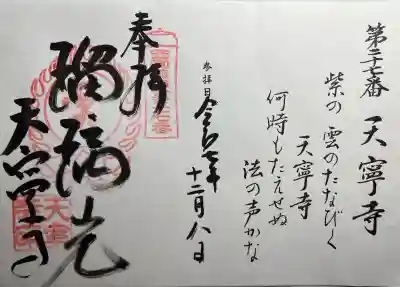 第二十七番 天寧寺
紫の雲のたなびく
天寧寺
何時もたえせぬ
法の声かな
参拝日 令和七年
十二月八日
奉拝
瑠璃光
天寧寺